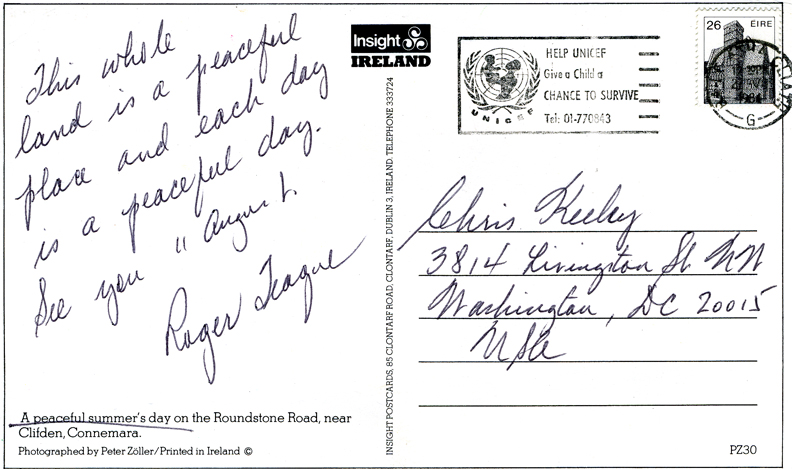 This whole
land is a peaceful
place and each day
is a peaceful day.
See you 11 August.
Roger Teague
A peaceful summer's day on the Roundstone Road, near
Clifden, Connemara.
Photographed by Peter Zöller/Printed in Ireland ©
Insight
IRELAND
INSIGHT POSTCARDS, 85 CLONTARF ROAD, CLONTARF, DUBLIN 3, IRELAND. TELEPHONE 333724
UNICEF
HELP UNICEF
Give a Child a
CHANCE TO SURVIVE
Tel: 01-770843
26 EIRE
1984
G
Chris Keeley
3814 Livingston St NW
Washington, DC 20015
USA
PZ30